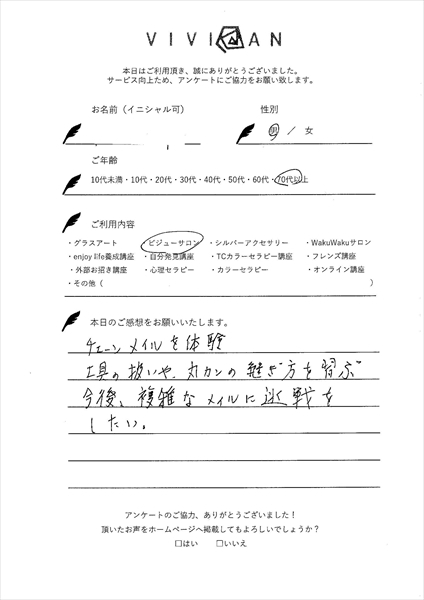 VIVIAN
本日はご利用頂き、誠にありがとうございました。
サービス向上ため、アンケートにご協力をお願い致します。
お名前（イニシャル可）
性別
男 / 女
ご年齢
10代未満・10代・20代・30代・40代・50代・60代・70代以上
ご利用内容
・グラスアート ・ビジューサロン ・シルバーアクセサリー ・WakuWakuサロン
・enjoy life養成講座 ・自分発見講座 ・TCカラーセラピー講座 ・フレンズ講座
・外部お招き講座 ・心理セラピー ・カラーセラピー ・オンライン講座
・その他（ ）
本日のご感想をお願いいたします。
チェーンメイルを体験
工具の扱いや、丸カンの継ぎ方を習ぶ
今後、複雑なメイルに挑戦を
したい。
アンケートのご協力、ありがとうございました！
頂いたお声をホームページへ掲載してもよろしいでしょうか？
□はい □いいえ